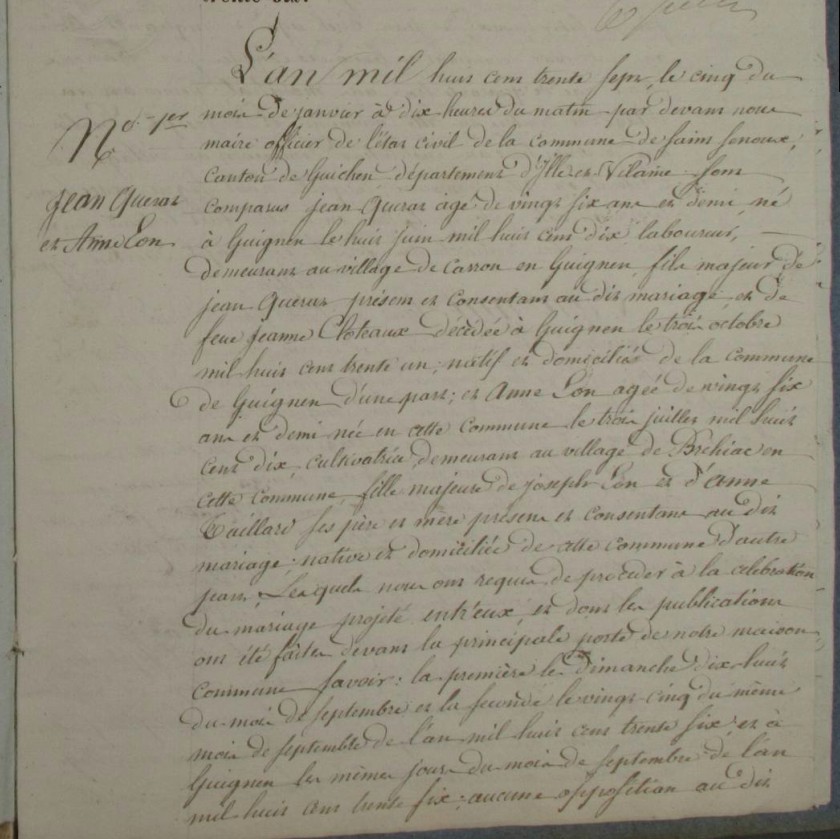 trente six.
N.º 1er
jean Queras
et Anne Lon
L'an mil huit cent trente sept, le cinq du
mois de janvier à dix heures du matin par devant nous
maire officier de l'état civil de la commune de saint senoux,
canton de Guichen département d'Ille et Vilaine sont
comparus jean Queras agé de vingt six ans et demi né
à Guignen le huit juin mil huit cent dix laboureur,
demeurant au village de Carron en Guignen fils majeur de
jean Queras présent et consentant au dit mariage et de
feue jeanne Cloteaux décédée à Guignen le trois octobre
mil huit cent trente un, natif et domicilié de la commune
de Guignen d'une part; et Anne Lon agée de vingt six
ans et demi née en cette commune le trois juillet mil huit
cent dix, cultivatrice demeurant au village de Brehiac en
cette commune, fille majeure de joseph Lon et d'anne
Taillard ses père et mère présens et consentans au dit
mariage, native et domiciliée de cette commune d'autre
part, Lesquels nous ont requis de procéder à la célébration
du mariage projeté entr'eux et dont les publications
ont été faites devant la principale porte de notre maison
commune savoir: la première le dimanche dix huit
du mois de septembre et la seconde le vingt cinq du même
mois de septembre de l'an mil huit cent trente six, et à
Guignen les mêmes jours du mois de septembre de l'an
mil huit cent trente six; aucune opposition au dit